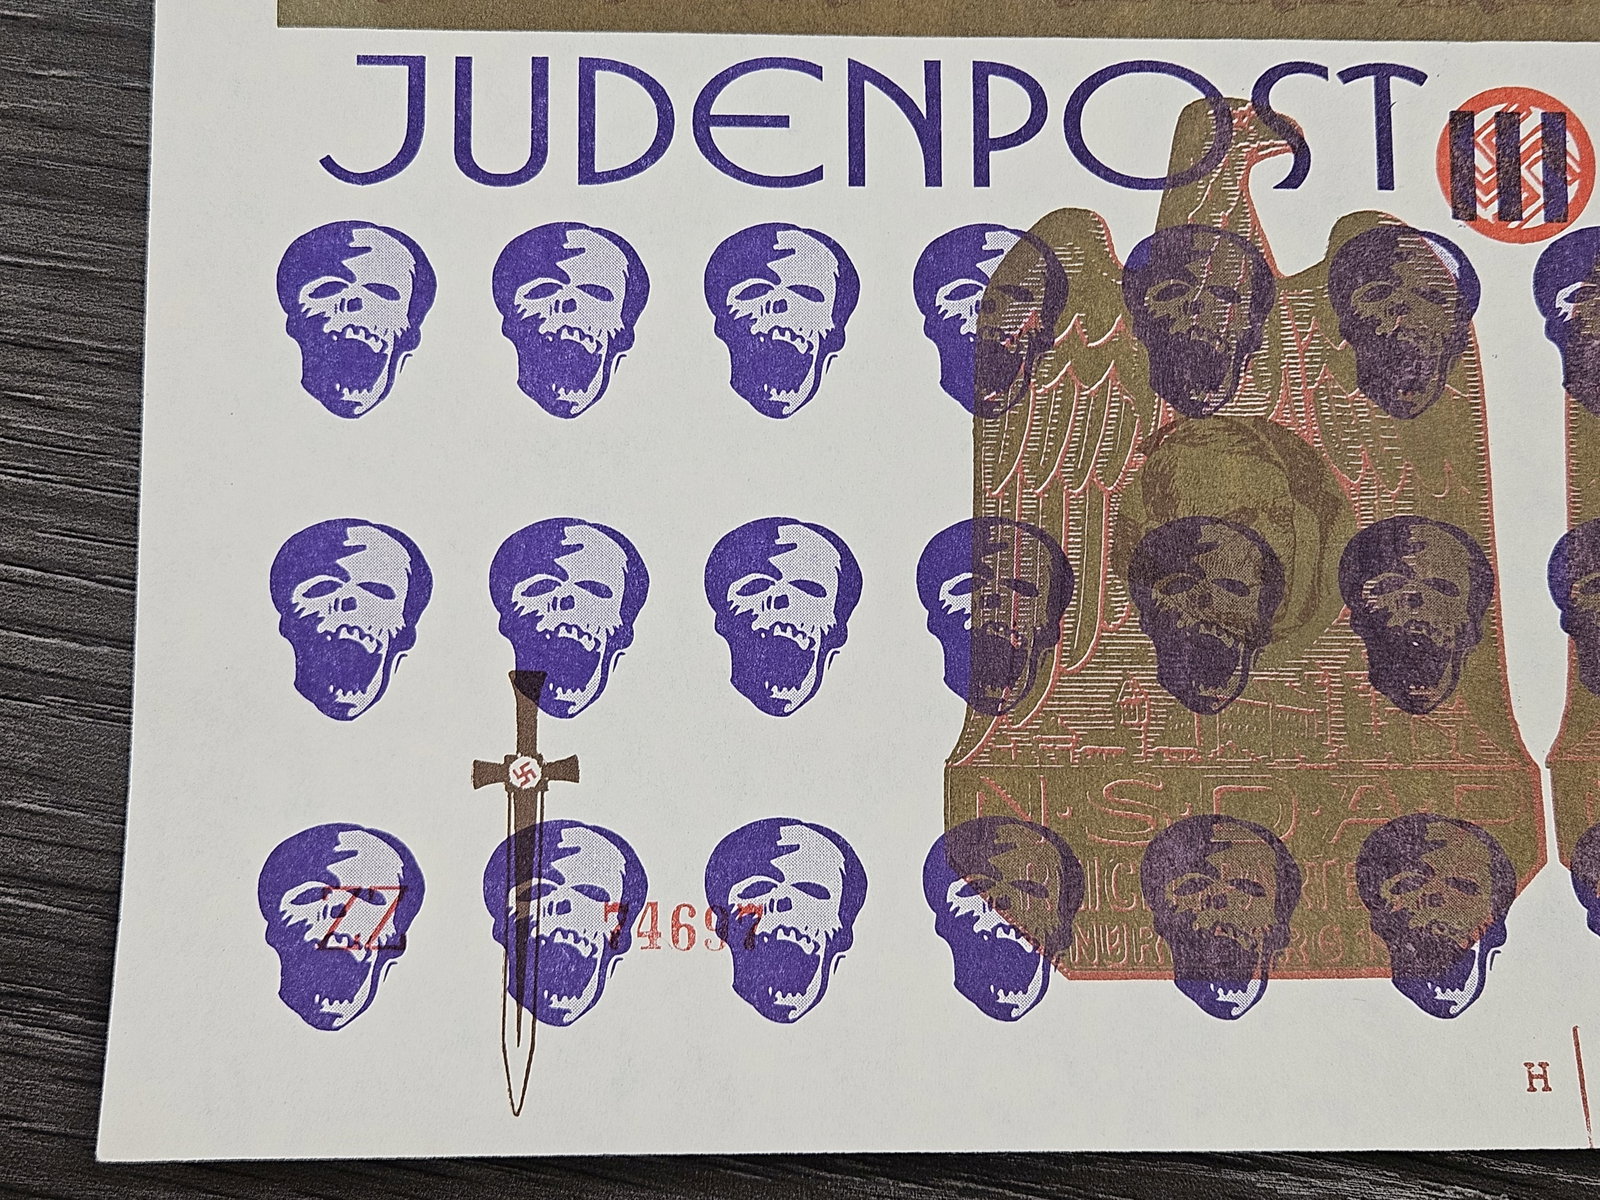 JUDENPOST
N·S·D·A·P
ZZ 74697
H